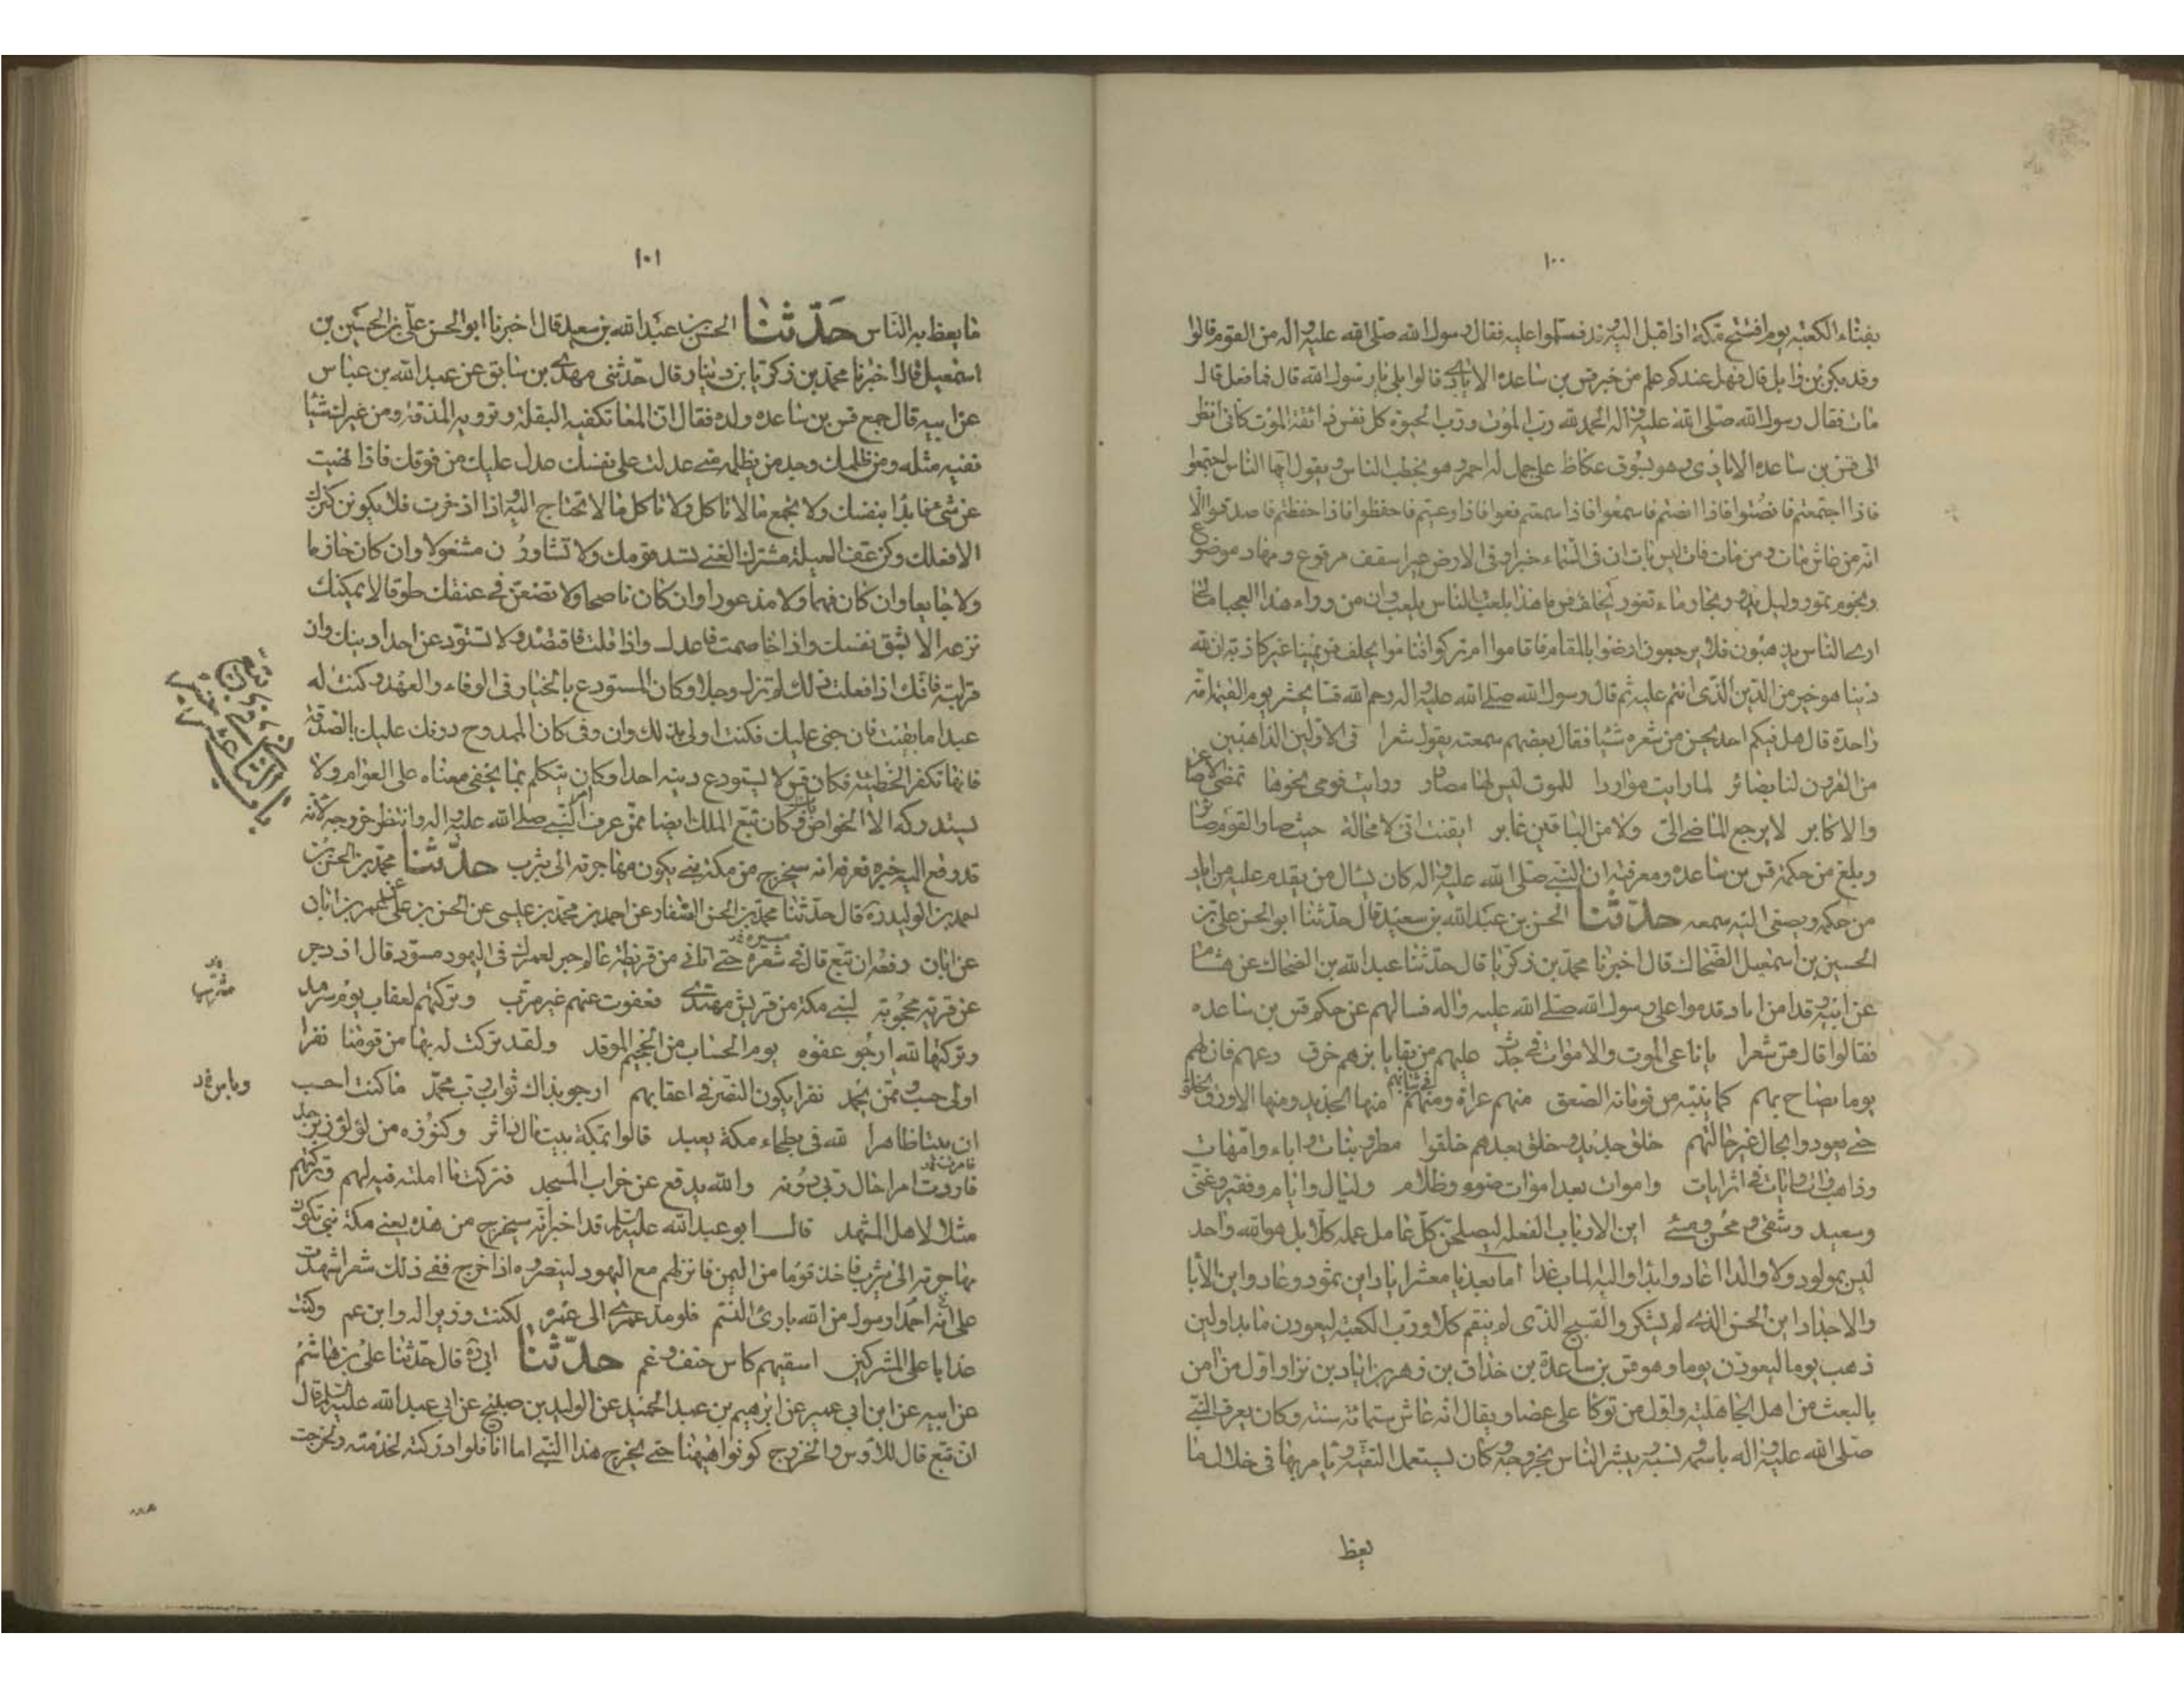 ١٠٠
بفناء الكعبة يوم افتتح مكة اذا قبل اليه وفد فسلموا عليه فقال رسول الله صلى الله عليه واله من القوم قالوا
وفد بكر بن وابل قال فهل عندكم علم من خبر قس بن ساعده الايادى قالوا بلى يا رسول الله قال فما فعل قال
مات فقال رسول الله صلى الله عليه واله الحمد لله رب الموت ورب الحيوة كل نفس ذائقة الموت كانى انظر
الى قس بن ساعده الايادى وهو بسوق عكاظ على جمل له احمر وهو يخطب الناس ويقول ايها الناس اجتمعوا
فاذا اجتمعتم فانصتوا فاذا انصتم فاسمعوا فاذا سمعتم فعوا فاذا وعيتم فاحفظوا فاذا حفظتم فاصدقوا الا
انه من عاش مات ومن مات فات ليس بات ان فى السماء خبرا وفى الارض عبرا سقف مرفوع ومهاد موضوع
ونجوم تمور وليل يدور وبحار ماء تغور يحلف قس ما هذا بلعب الناس بلعب وان من وراء هذا العجبا مالى
ارى الناس يذهبون فلا يرجعون ارضوا بالمقام فاقاموا ام تركوا فناموا يحلف قس يمينا غير كاذبة ان لله
دينا هو خير من الدين الذى انتم عليه ثم قال رسول الله صلى الله عليه واله رحم الله قسا يحشر يوم القيمة امة
واحدة قال هل فيكم احد يحسن من شعره شيئا فقال بعضهم سمعته يقول شعرا فى الاولين الذاهبين
من القرون لنا بصائر لما رايت مواردا للموت ليس لها مصادر ورايت قومى نحوها تمضى الاصاغر
والاكابر لا يرجع الماضى الى ولا من الباقين غابر ايقنت انى لا محالة حيث صار القوم صائر
وبلغ من حكمة قس بن ساعده ومعرفته ان النبى صلى الله عليه واله كان يسال من يقدم عليه من اياد
من حكمه ويصغى اليه سمعه حدثنا الحسن بن عبد الله بن سعيد قال حدثنا ابو الحسن على بن
الحسين بن اسمعيل الضحاك قال اخبرنا محمد بن زكريا قال حدثنا عبد الله بن الضحاك عن هشام
عن ابيه وفدا من اياد قدموا على رسول الله صلى الله عليه واله فسالهم عن حكم قس بن ساعده
فقالوا قال قس شعرا يا ناعى الموت والاموات فى جدث عليهم من بقايا بزهم خرق دعهم فان لهم
يوما يصاح بهم كما ينبه من نوماته الصعق منهم عراة ومنهم فى ثيابهم منها الجديد ومنها الاورق الخلق
حتى يعودوا بحال غير حالتهم خلق جديد وخلق بعدهم خلقوا مطر ونبات واباء وامهات
وذاهب وات وايات فى اثر ايات واموات بعد اموات ضوء وظلام وليال وايام وفقير وغنى
وسعيد وشقى ومحسن ومسئ اين الارباب الفعلة ليصلحن كل عامل عمله كلا بل هو الله واحد
ليس بمولود ولا والد اعاد وابدا واليه الماب غدا اما بعد يا معشر اياد اين ثمود وعاد واين الابا
والاجداد اين الحسن الذى لم يشكر والقبيح الذى لم ينقم كلا ورب الكعبة ليعودن ما بدا ولئن
ذهب يوما ليعودن يوما وهو قس بن ساعدة بن حذاق بن زهر بن اياد بن نزار اول من امن
بالبعث من اهل الجاهلية واول من توكا على عصا ويقال انه عاش ستمائة سنة وكان يعرف النبى
صلى الله عليه واله باسمه ونسبه ويبشر الناس بخروجه وكان يستعمل التقية ويامر بها فى خلال ما
يعظ
١٠١
ما يعظ به الناس حدثنا الحسن بن عبد الله بن سعيد قال اخبرنا ابو الحسن على بن الحسين بن
اسمعيل قال اخبرنا محمد بن زكريا بن دينار قال حدثنى مهدى بن سابق عن عبد الله بن عباس
عن ابيه قال جمع قس بن ساعده ولده فقال ان المعا تكفيه البقلة وترويه المذقة ومن عيرك شيئا
ففيه مثله ومن ظلمك وجد من يظلمه متى عدلت على نفسك عدل عليك من فوقك فاذا نهيت
عن شئ فابدا بنفسك ولا تجمع ما لا تاكل ولا تاكل ما لا تحتاج اليه واذا ادخرت فلا يكونن كنزك
الا فعلك وكن عف العيلة مشترك الغنى تسد قومك ولا تشاورن مشغولا وان كان حازما
ولا جايعا وان كان فهما ولا مذعورا وان كان ناصحا ولا تضعن فى عنقك طوقا لا يمكنك
نزعه الا بشق نفسك واذا خاصمت فاعدل واذا قلت فاقتصد ولا تستودعن احدا دينك وان
قربت قرابته فانك اذا فعلت ذلك لم تزل وجلا وكان المستودع بالخيار فى الوفاء والعهد وكنت له
عبدا ما بقيت فان جنى عليك فكنت اولى بذلك وان وفى كان الممدوح دونك عليك بالصدقة
فانها تكفر الخطيئة فكان قس لا يستودع دينه احدا وكان يتكلم بما يخفى معناه على العوام ولا
يستدركه الا الخواص وكان تبع الملك ايضا ممن عرف النبى صلى الله عليه واله وانتظر خروجه لانه
قد وقع اليه خبره فعرفه انه سيخرج من مكة نبى يكون مهاجرته الى يثرب حدثنا محمد بن الحسن بن
احمد بن الوليد ره قال حدثنا محمد بن الحسن الصفار عن احمد بن محمد بن عيسى عن الحسن بن على عن عمر بن ابان
عن ابان رفعه ان تبع قال فى شعره حتى اتانى من قريظة عالم حبر لعمرك فى اليهود مسود قال ازدجر
عن قرية محجوبة لنبى مكة من قريش مهتدى فعفوت عنهم عفو غير مثرب وتركتهم لعقاب يوم سرمد
وتركتها لله ارجو عفوه يوم الحساب من الجحيم الموقد ولقد تركت له بها من قومنا نفرا
اولى حسب ممن يحمد نفرا يكون النصر فى اعقابهم ارجو بذاك ثواب رب محمد ما كنت احسب
ان بيتا ظاهرا لله فى بطحاء مكة يعبد قالوا بمكة بيت مال داثر وكنوزه من لؤلؤ وزبرجد
فاردت امرا حال ربى دونه والله يدفع عن خراب المسجد فتركت ما املته فيه لهم وتركتهم
مثلا لاهل المشهد قال ابو عبد الله عليه السلم قد اخبر انه سيخرج من هذه يعنى مكة نبى يكون
مهاجرته الى يثرب فاخذ قوما من اليمن فانزلهم مع اليهود لينصروه اذا خرج ففى ذلك شعرا شهدت
على احمد انه رسول من الله بارئ النسم فلو مد عمرى الى عمره لكنت وزيرا له وابن عم وكنت
عذابا على المشركين اسقيهم كاس حتف وغم حدثنا ابى ره قال حدثنا على بن هاشم
عن ابيه عن ابن ابى عمير عن ابرهيم بن عبد الحميد عن الوليد بن صبيح عن ابى عبد الله عليه السلم قال
ان تبع قال للاوس والخزرج كونوا هيهنا حتى يخرج هذا النبى اما انا فلو ادركته لخدمته ولخرجت